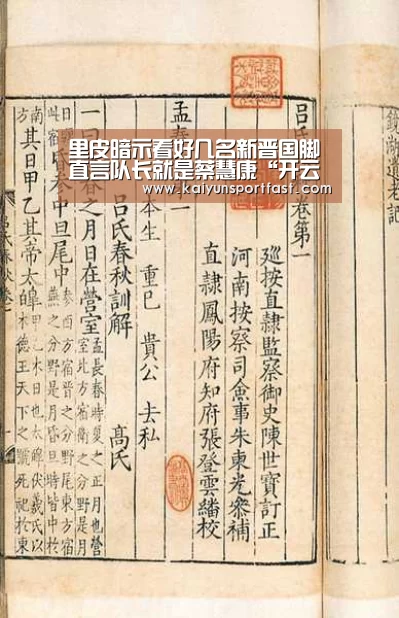 里皮暗示看好几名新晋国脚
直言队长就是蔡慧康“开云
www.kaiyunsportfast.com
鏡湖遺老記
呂氏 卷第一
廵按直隷監察御史陳世寶訂正
河南按察司僉事朱東光叅補
直隷鳳陽府知府張登雲繙校
孟春
本生 重已 貴公 去私
呂氏春秋訓解 高氏
一曰 春之月日在營室
孟長春時夏之正月也營
室北方宿衛之分野是月
參中旦尾中
參西方宿晉之分野尾東方宿
燕之分野是月昏旦時皆中於
南
其日甲乙其帝太皥
甲乙木日也太皥伏羲氏以
木德王天下之號死祀於東